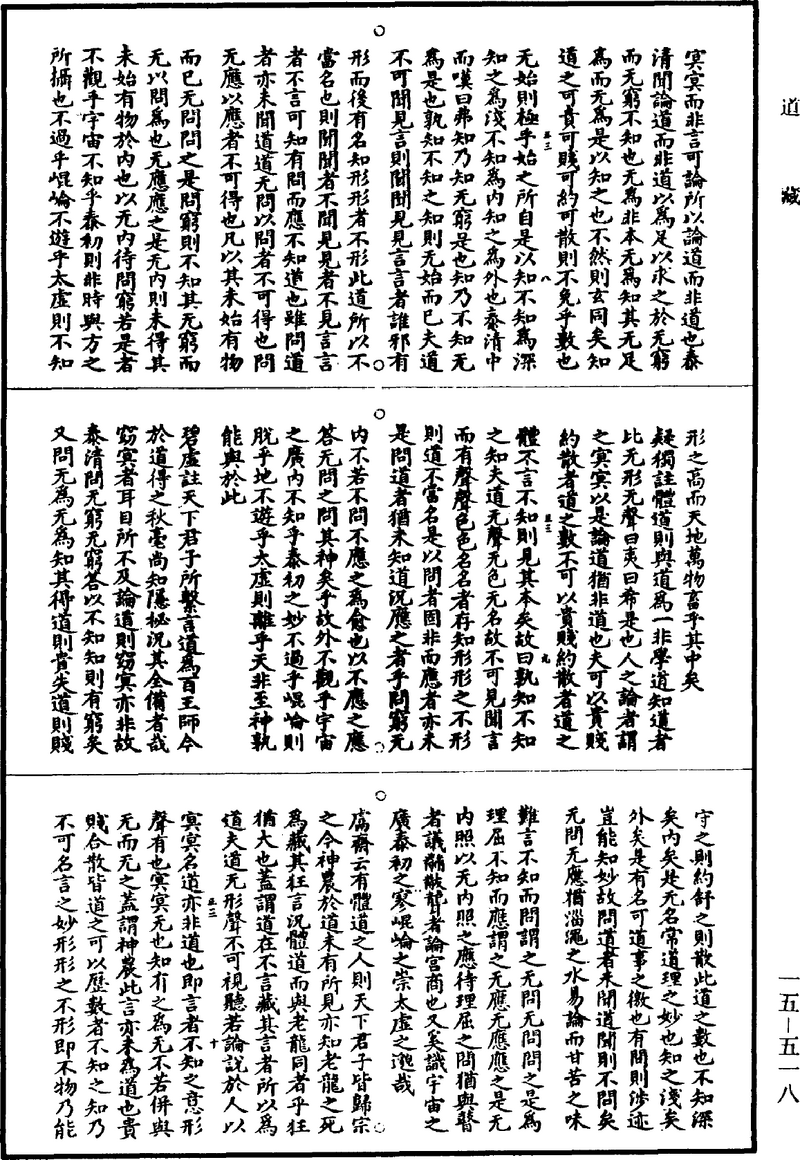 道藏
冥冥而非言可論所以論道而非道也泰
清聞論道而非道以爲足以求之於无窮
而无窮不知也无爲非本无爲知其无足
爲而无爲是以知之也不然則玄同矣知
道之可貴可賤可約可散則不免乎數也
无始則極乎始之所自是以知不知爲深
知之爲淺不知爲内知之爲外也泰清中
而嘆曰弗知乃知无窮是也知乃不知无
爲是也孰知不知之知則无始而已夫道
不可聞見言則聞聞見見言言者誰邪有
形而後有名知形形者不形此道所以不
當名也則聞聞者不聞見見者不見言言
者不言可知有問而應不知道也雖問道
者亦未聞道道无問以問者不可得也問
无應以應者不可得也凡以其未始有物
而已无問問之是問窮則不知其无窮而
无以問爲也无應應之是无内則未得其
未始有物於内也以无内待問窮若是者
不觀乎宇宙不知乎泰初則非時與方之
所攝也不過乎崐崘不遊乎太虛則不知
五三
八
形之高而天地萬物畜乎其中矣
疑獨註體道則與道爲一非學道知道者
比无形无聲曰夷曰希是也人之論者謂
之冥冥以是論道猶非道也夫可以貴賤
約散者道之數不可以貴賤約散者道之
體不言不知則見其本矣故曰孰知不知
之知夫道无聲无色无名故不可見聞言
而有聲聲色色名名者存知形形之不形
則道不當名是以問者固非而應者亦未
是問道者猶未知道況應之者乎問窮无
内不若不問不應之爲愈也以不應之應
答无問之問其神矣乎故外不觀乎宇宙
之廣内不知乎泰初之妙不過乎崐崘則
脱乎地不遊乎太虛則離乎天非至神孰
能與於此
碧虛註天下君子所繫言道爲百王師今
於道得之秋毫尚知隱祕況其全備者哉
窈冥者耳目所不及論道則窈冥亦非故
泰清問无窮无窮答以不知知則有窮矣
又問无爲无爲知其得道則貴失道則賤
五三
九
守之則約舒之則散此道之數也不知深
矣内矣是无名常道理之妙也知之淺矣
外矣是有名可道事之徼也有問則涉迹
豈能知妙故問道者未聞道聞則不問矣
无問无應猶淄澠之水易論而甘苦之味
難言不知而問謂之无問无問問之是爲
理屈不知而應謂之无應无應應之是无
内照以无内照之應待理屈之問猶與瞽
者議黼黻聾者論宮商也又奚識宇宙之
廣泰初之寥崐崘之崇太虛之邈哉
鬳齋云有體道之人則天下君子皆歸宗
之今神農於道未有所見亦知老龍之死
爲藏其狂言況體道而與老龍同者乎狂
猶大也蓋謂道在不言藏其言者所以爲
道夫道无形聲不可視聽若論説於人以
冥冥名道亦非道也即言者不知之意形
聲有也冥冥无也知有之爲无不若併與
无而无之蓋謂神農此言亦未爲道也貴
賤合散皆道之可以歷數者不知之知乃
不可名言之妙形形之不形即不物乃能
五三
十
一五-五一八